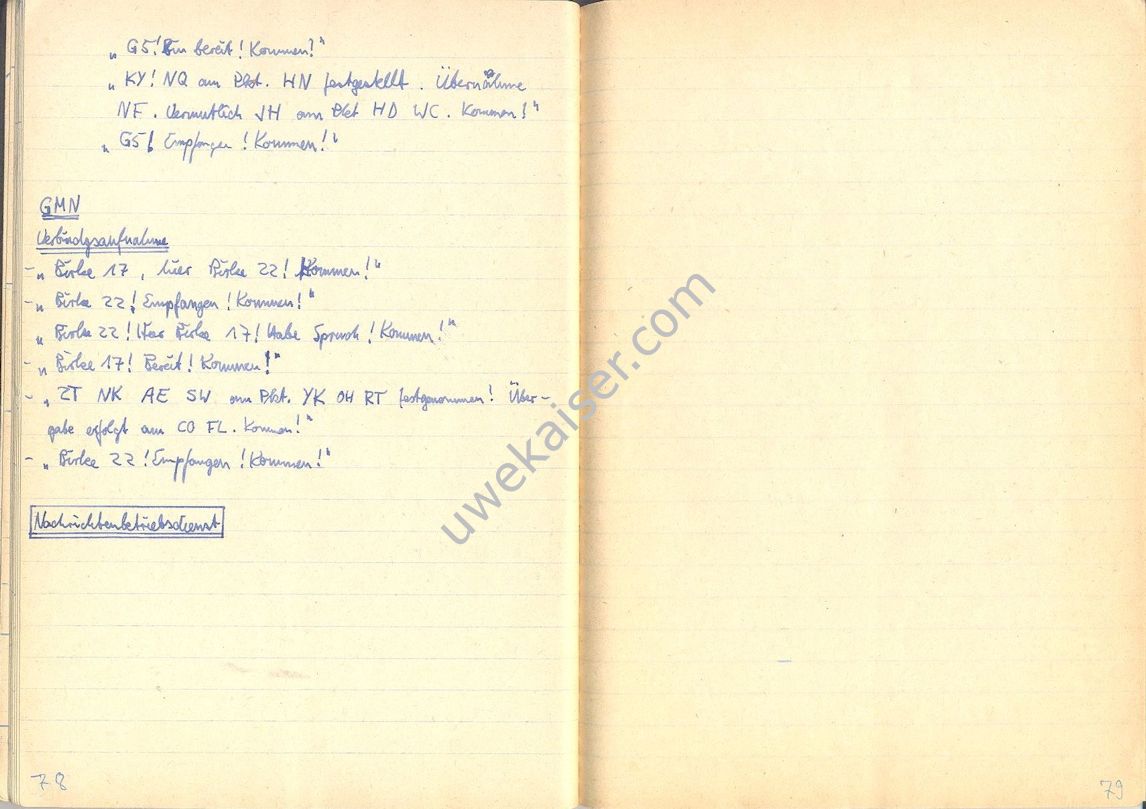 „G5! Bin bereit! Kommen!“
„KY! NQ am Pkt. HN festgestellt. Übernahme
NF. Vermutlich JH am Pkt HD WC. Kommen!“
„G5! Empfangen! Kommen!“
GMN
Verbindgsaufnahme
- „Birke 17, hier Birke 22! Kommen!“
- „Birke 22! Empfangen! Kommen!“
„Birke 22! Hier Birke 17! Habe Spruch! Kommen!“
- „Birke 17! Bereit! Kommen!“
- „ZT NK AE SW am Pkt. YK OH RT festgenommen! Über-
gabe erfolgt am CO FL. Kommen!“
- „Birke 22! Empfangen! Kommen!“
Nachrichtenbetriebsdienst
78
79
uwekaiser.com